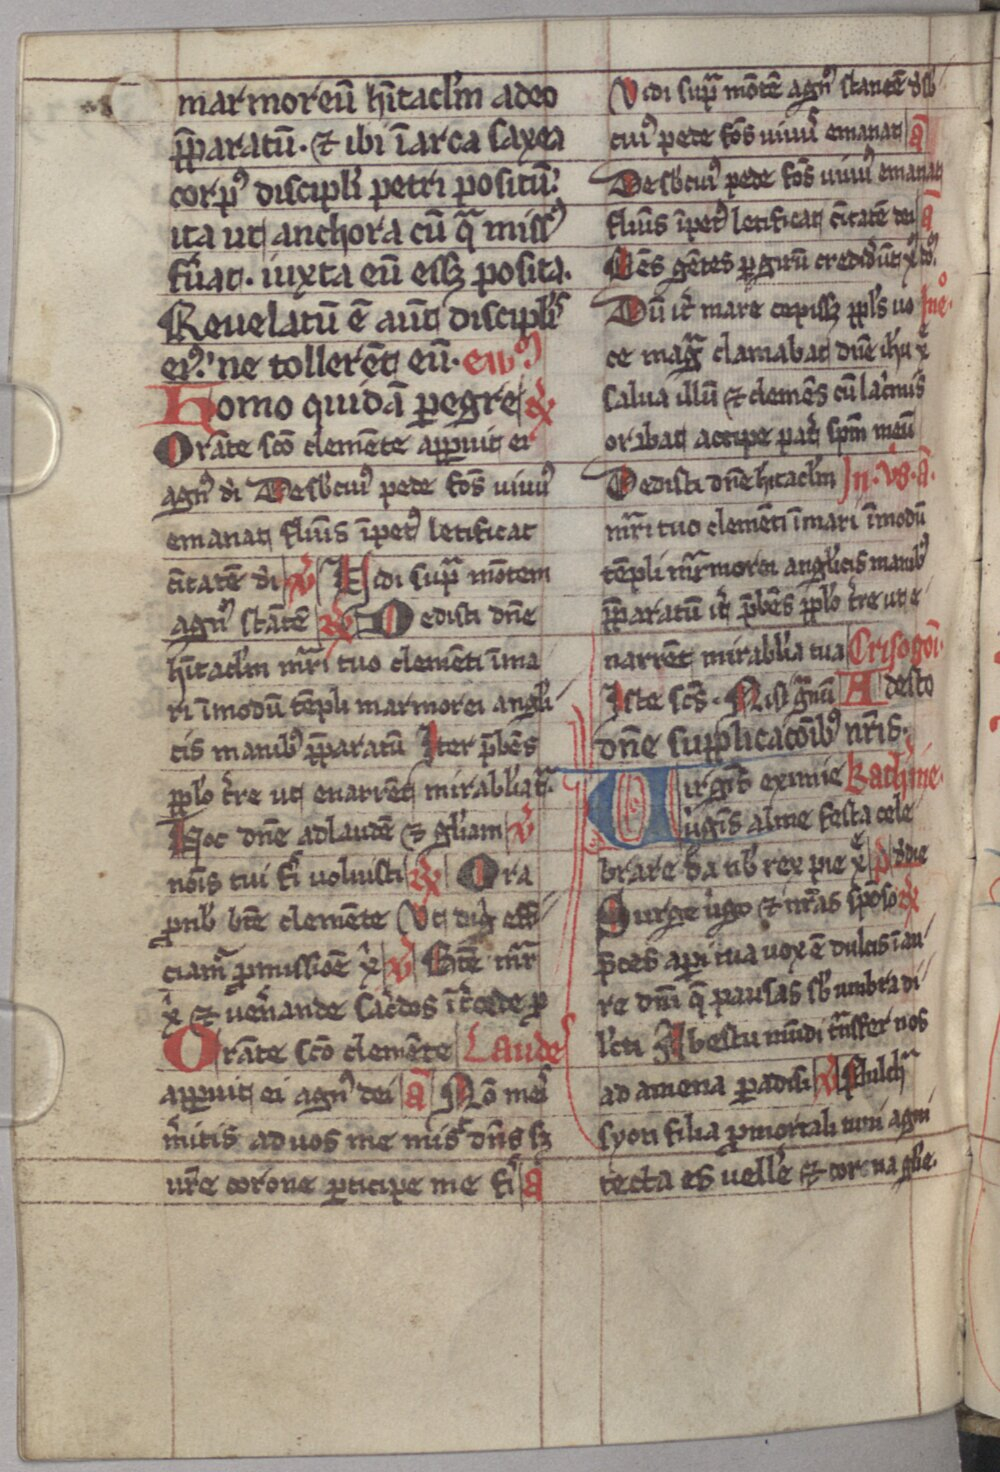 marmoreū hītacl'm adeo
p̄paratū. ⁊ ibi ī arca saxea
corpꝰ discipl'i petri positū.
ita ut anchora cū q̄ missꝰ
fūat. iuxta eū essꝫ posita.
Reuelatū ē aūt discipl'is
eiꝰ. ne tollerēt eū. ewꝫ
Homo quidā pegre ꝶ
Orāte sc̄o clemēte apparuit ei
agnꝰ di De sb' cuiꝰ pede fōs uiuꝰ
emanat fluuīs īpetꝰ letificat
ciuitatē di ꝟ Uidi supᵃ mōtem
agnū stātē ꝶ Dedisti dn̄e
hītacl'm mr̄i tuo clementi ī ma
ri ī modū tēpli marmorei angl'i
cis manibꝰ p̄paratū Iter p̄bēs
ppl'o t̄re ut enarrēt mirabl'ia tᵃ.
Hoc dn̄e ad laudē ⁊ gl'iam ꝟ
nōis tui fi uoluisti ꝶ Ora
p nob' bte clemēte Ut dig effi
ciamᵘ pmissiōe x̄ ꝟ Btē mr̄
x̄ ⁊ uen̄ande sac̄dos īt̄cede p
Orāte sc̄o clemēte Laude
apparuit ei agnꝰ dei ā Nō meis
m̄itis ad uos me misit dn̄s sꝫ
ur̄e corone pticipe me fi ā
Vidi supᵃ mōtē agnū stantē de sb'
cuiꝰ pede fōs uiuꝰ emanat ā
De sb' cuiꝰ pede fōs uiuꝰ emanat
fluuīs īpetꝰ letificat ciuitatē dei ā
Oēs gētes p girū credidūt x̄ dō.
Dū iť mare cepissꝫ ppl's uo In eº.
ce maḡ clamabat dn̄e ihu x̄
salua illū ⁊ clemēs cū lac̄mis
orabat accipe pat̄ spm̄ meū
Dedisti dn̄e hitacl'm In. ꝟꝫ. ā.
mr̄i tuo clementi ī mari ī modū
tēpli mr̄morei anglicis manibꝰ
p̄paratū iť p̄bēs ppl'o t̄re ut e
narrēt mirabl'ia tua Crisogōi.
Iste sc̄s. Nisi g̃nū Adesto
dn̄e supplicacōibꝰ nr̄is.
Uirgīs eximie Kathine.
Uirgīs alme festa cele
brare da nob' rex pie x̄
Surge ūgo ⁊ nr̄as spōso ꝶ
p̄ces api tua uox ē dulcis ī au
re dn̄i q̄ pausas sb' umbra di
lc̄ti Ab estu mūdi trāsfer nos
ad amena padisi ꝟ Pulchᵃ
syon filia p mortali tuni agni
tecta es uelle'e ⁊ corona gl'ie.